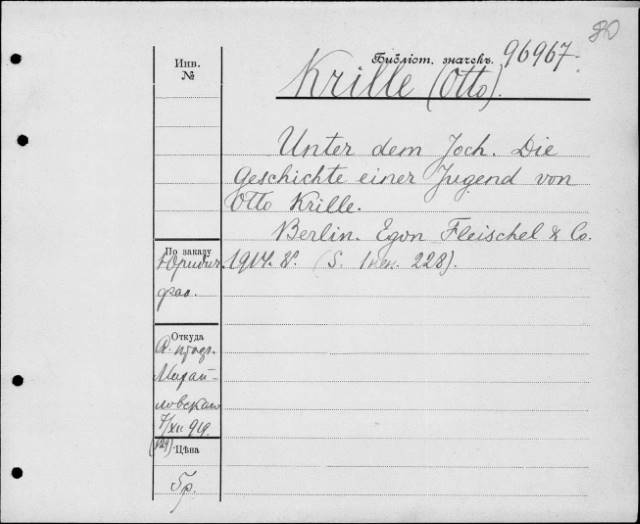 80
Инв.
№
Библіот. значекъ. 96967.
Krille (Otto).
Unter dem Joch. Die
Geschichte einer Jugend von
Otto Krille.
Berlin. Egon Fleischel & Co.
1914. 8°. (S. 1нен. 228).
По заказу
Юридич.
фак.
Откуда
Михай-
ловскаго
7/XII 914.
Цѣна
5р.